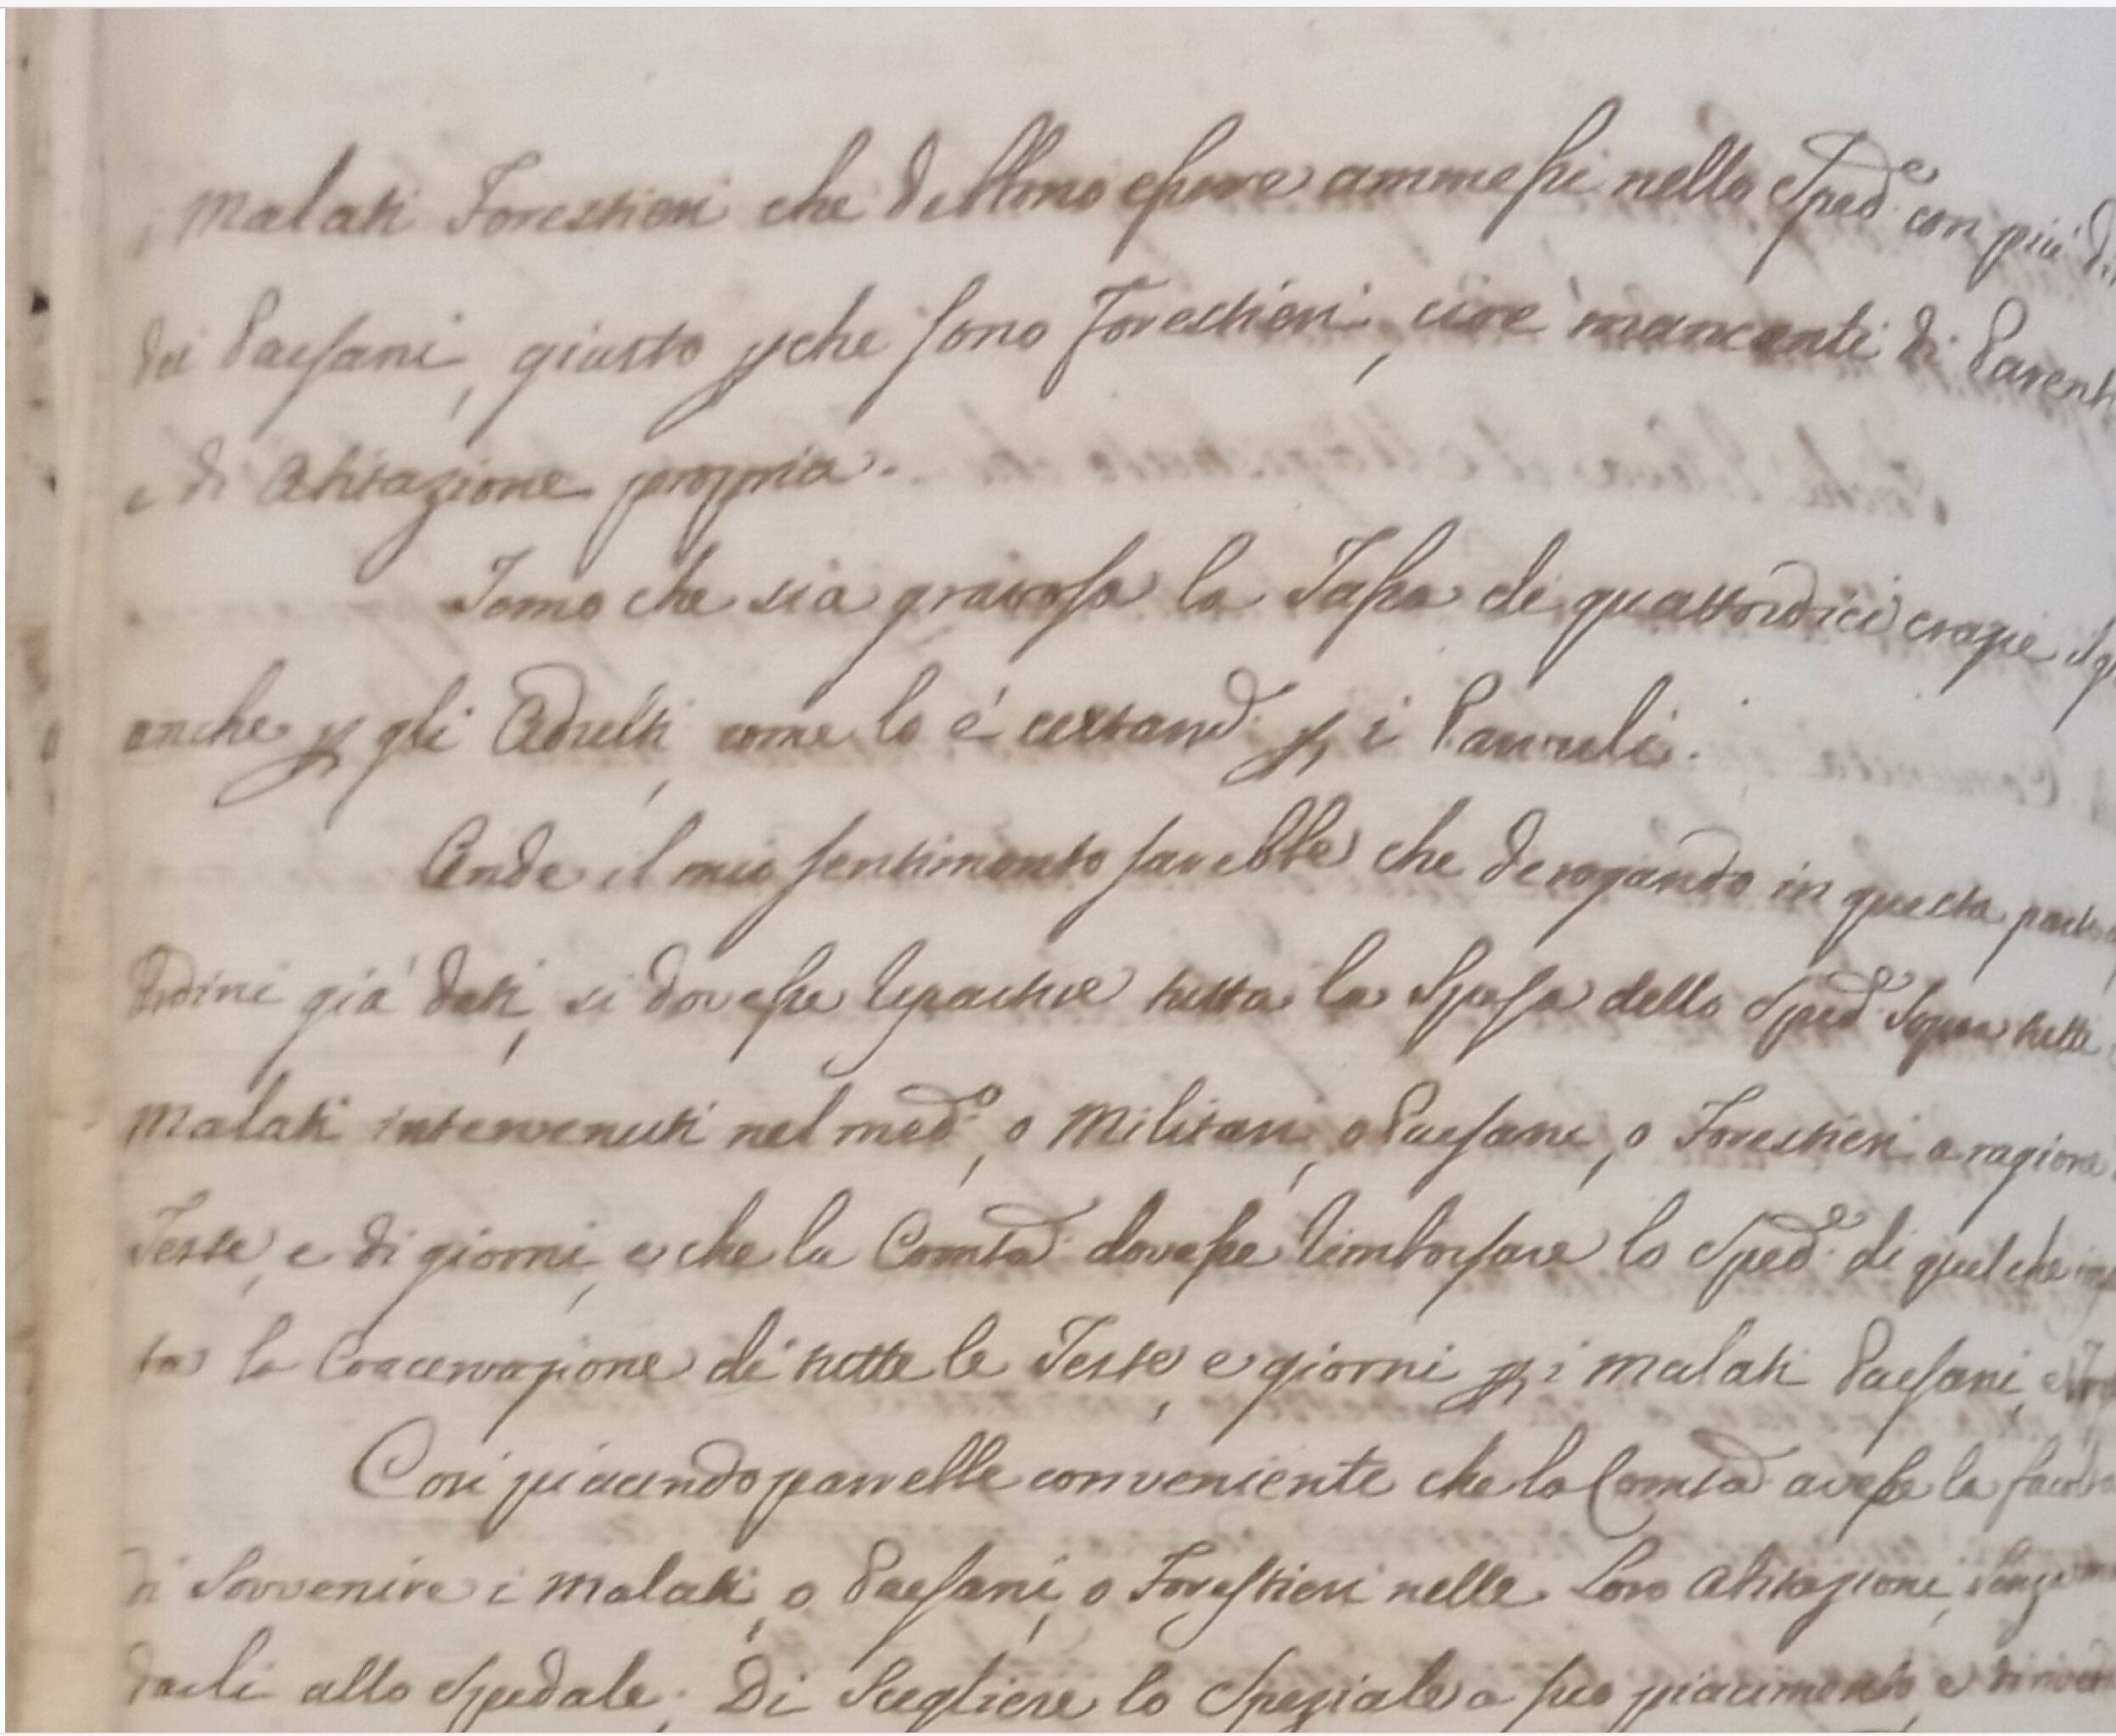 Malati Forestieri che debbono essere ammessi nello Sped.e con più
dei Paesani, giusto pche sono Forestieri, cioè mancanti di Parenti
e di Abitazione propria.
Temo che sia gravosa la Tassa di quattordici crazie il
anche p gli Adulti, come lo è certam.e p i Parvuli.
Onde il mio sentimento sarebbe che derogando in questa parte
Ordini già dati, si dovesse repartire tutta la Spesa dello Sped.e Sopra tutti
Malati intervenuti nel med.o, o Militari, o Paesani, o Forestieri a ragione
Teste, e di giorni, e che la Comtà dovesse rimborsare lo Sped.e di quel che
ta la Coacervazione di tutte le Teste, e giorni p i Malati Paesani,
Così piacendo parrebbe conveniente che la Comtà avesse la facoltà
di Sovvenire i Malati, o Paesani, o Forestieri nelle Loro Abitazioni, Senza
darli allo Spedale. Di Scegliere lo Speziale a suo piacimento, e di